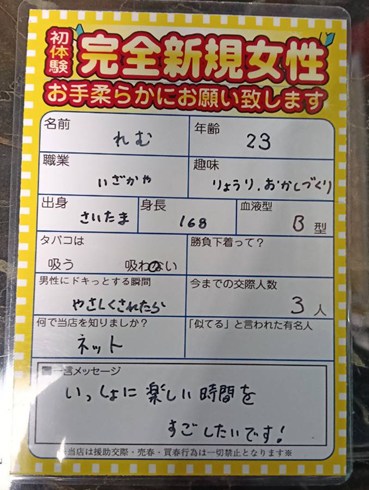 初体験 完全新規女性
お手柔らかにお願い致します
名前 れむ 年齢 23
職業 いざかや 趣味 りょうり、おかしづくり
出身 さいたま 身長 168 血液型 B型
タバコは 吸う 吸わない 勝負下着って?
男性にドキっとする瞬間 やさしくされたら 今までの交際人数 3人
何で当店を知りましたか? ネット 「似てる」と言われた有名人
一言メッセージ
いっしょに楽しい時間を
すごしたいです!
当店は援助交際・売春・買春行為は一切禁止となります※